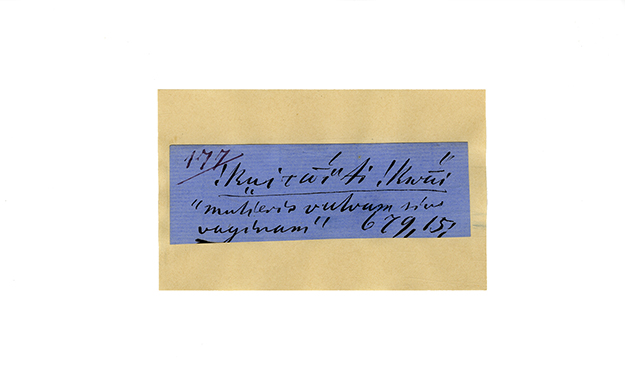 177
!kui ta ǘ ti !kwãi
"mulieris vulvam sive
vaginam" 679, 15,